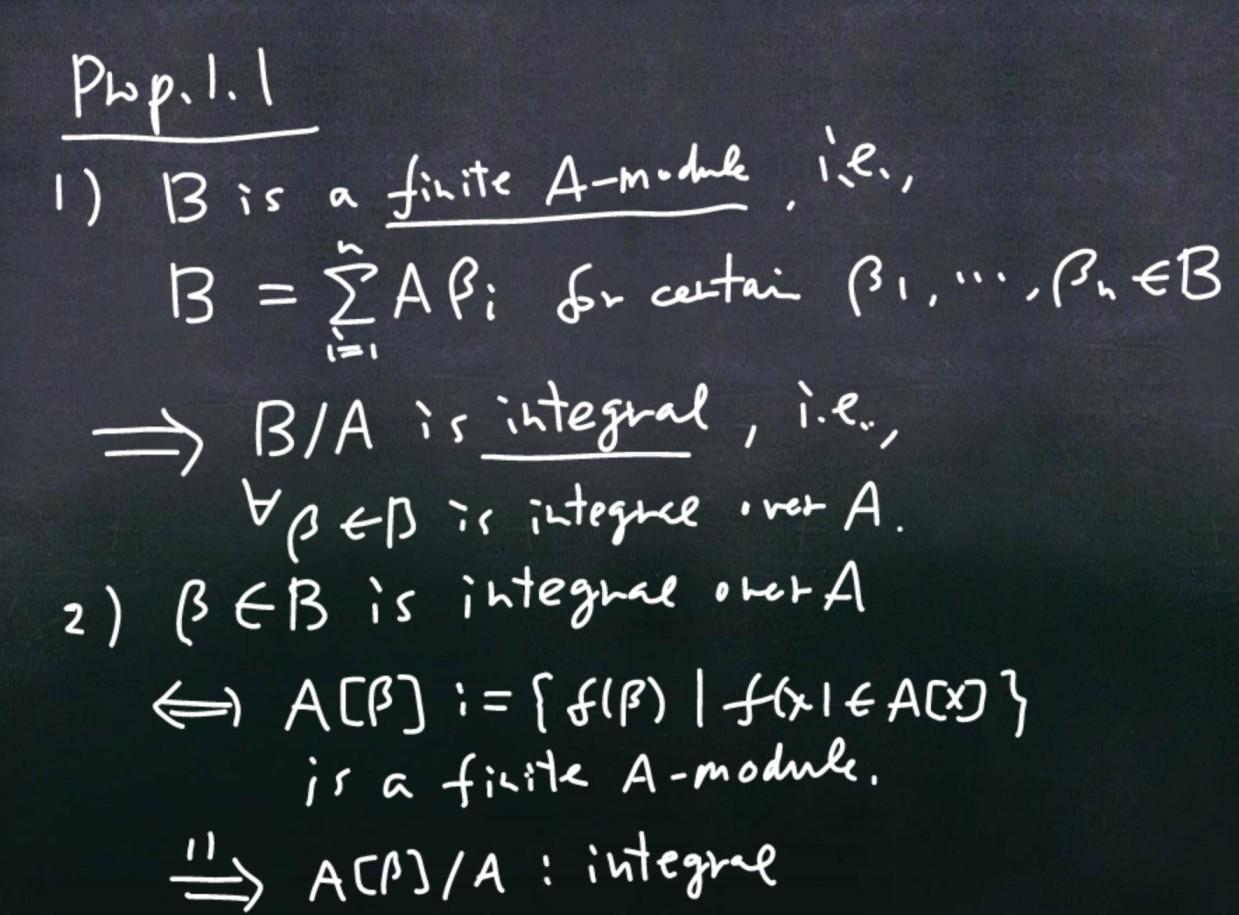 Prop. 1.1
1) B is a finite A-module, i.e.,
B = \sum_{i=1}^{n} A β_i for certain β_1, ..., β_n ∈ B
⟹ B/A is integral, i.e.,
∀β ∈ B is integral over A.
2) β ∈ B is integral over A
⟺ A[β] := { f(β) | f(x) ∈ A[x] }
is a finite A-module.
1) ⟹ A[β]/A : integral